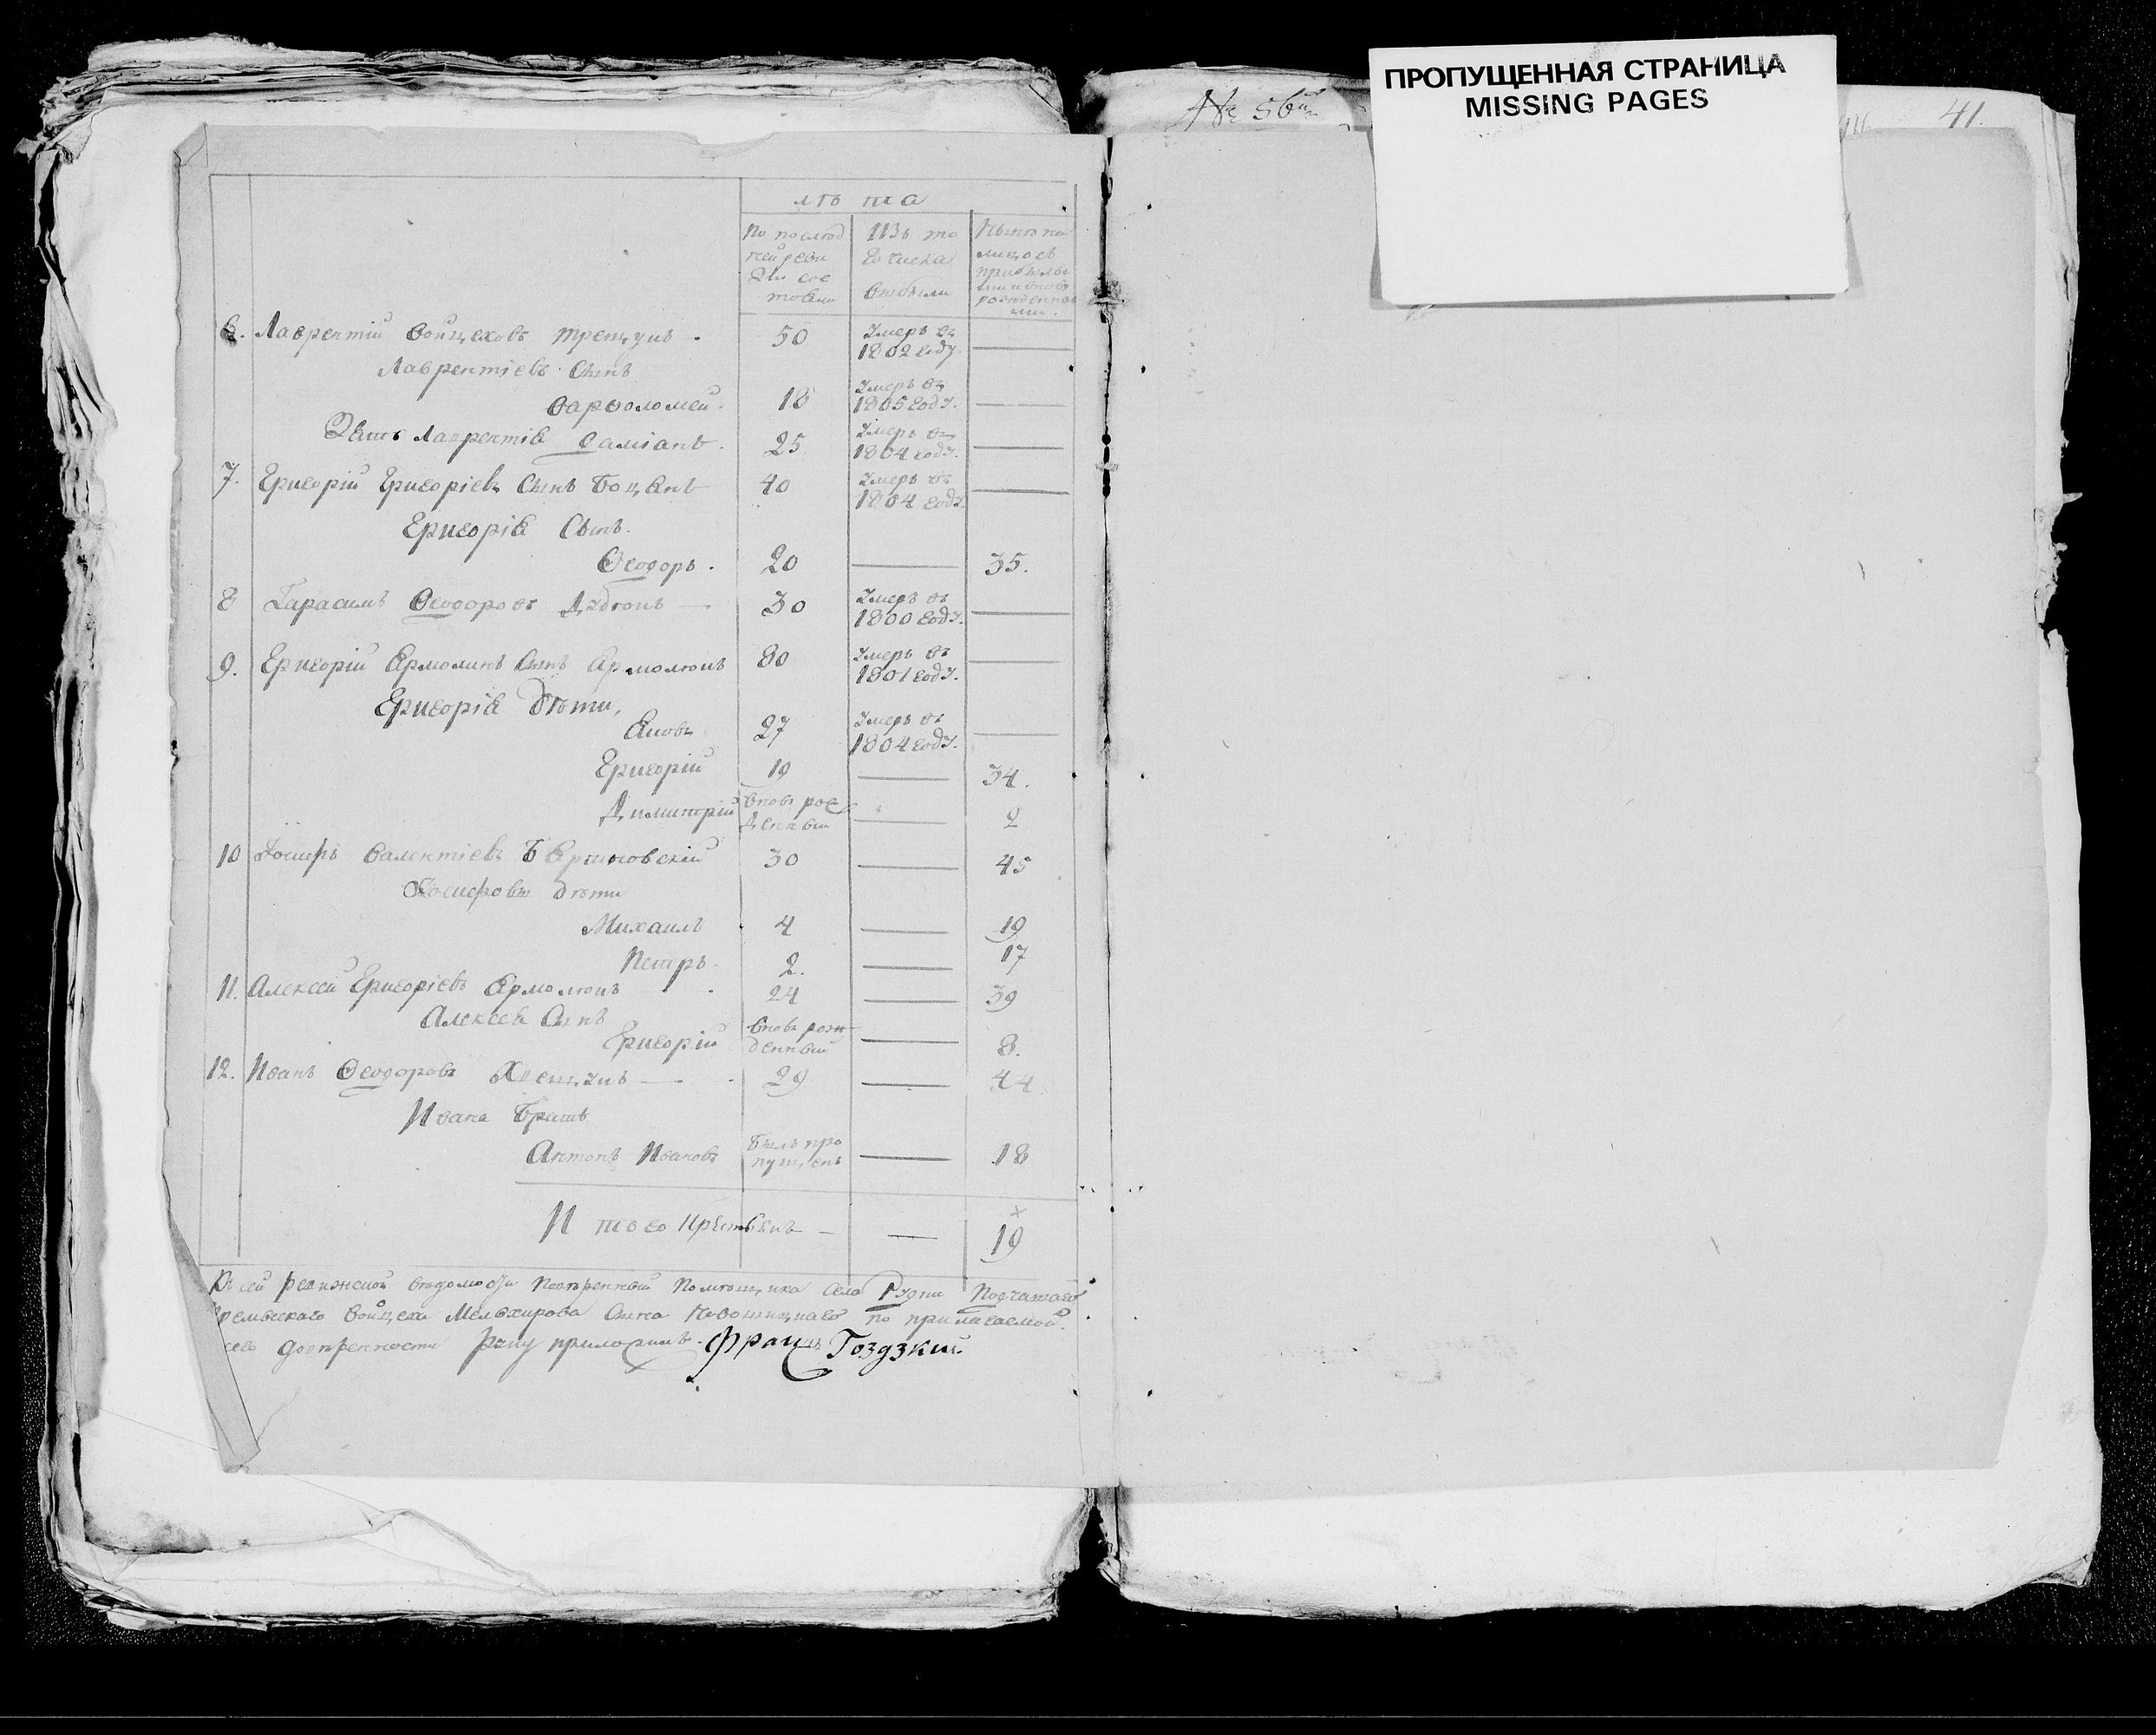 ПРОПУЩЕННАЯ СТРАНИЦА
MISSING PAGES
№ 56й
41.
лѣта
По послѣд
ней реви
зіи сос
тояли
Изъ то
го числа
выбыли
Нынѣ на
лицо съ
прибылы
ми и вновь
рожденны
ми.
6. Лаврентій Войцеховъ Трещукъ. 50 Умеръ въ 1802 году.
Лаврентіевъ Сынъ
Варфоломей. 18 Умеръ въ 1805 году.
Зять Лаврентія Даміанъ. 25 Умеръ въ 1804 году.
7. Григорій Григоріевъ Сынъ Боцянъ 40 Умеръ въ 1804 году.
Григорія Сынъ.
Ѳеодоръ. 20 — 35.
8 Гарасимъ Ѳеодоровъ — 30 Умеръ въ 1800 году.
9. Григорій Ярмолинъ Сынъ Ярмолюкъ 80 Умеръ въ 1801 году.
Григорія дѣти,
Яковъ 27 Умеръ въ 1804 году.
Григорій 19 — 34.
Димитрій Вновь рож денный — 2
10 Іосифъ Валентіевъ 30 — 45
Іосифовы дѣти
Михаилъ 4 — 19
Петръ. 2. — 17
11. Алексей Григоріевъ Ярмолюкъ — 24 — 39
Алексея Сынъ
Григорій Вновь рож денный — 8.
12. Иванъ Ѳеодоровъ — 29 — 44
Ивана Братъ
Антонъ Ивановъ Былъ про пущенъ — 18
Итого — — 19
Къ сей ревижской вѣдомости повѣренный Помѣщика Села Рудни
Войцеха Мельхирова Сына по прилагаемой
довѣренности руку приложилъ. Францъ Гоздзкий